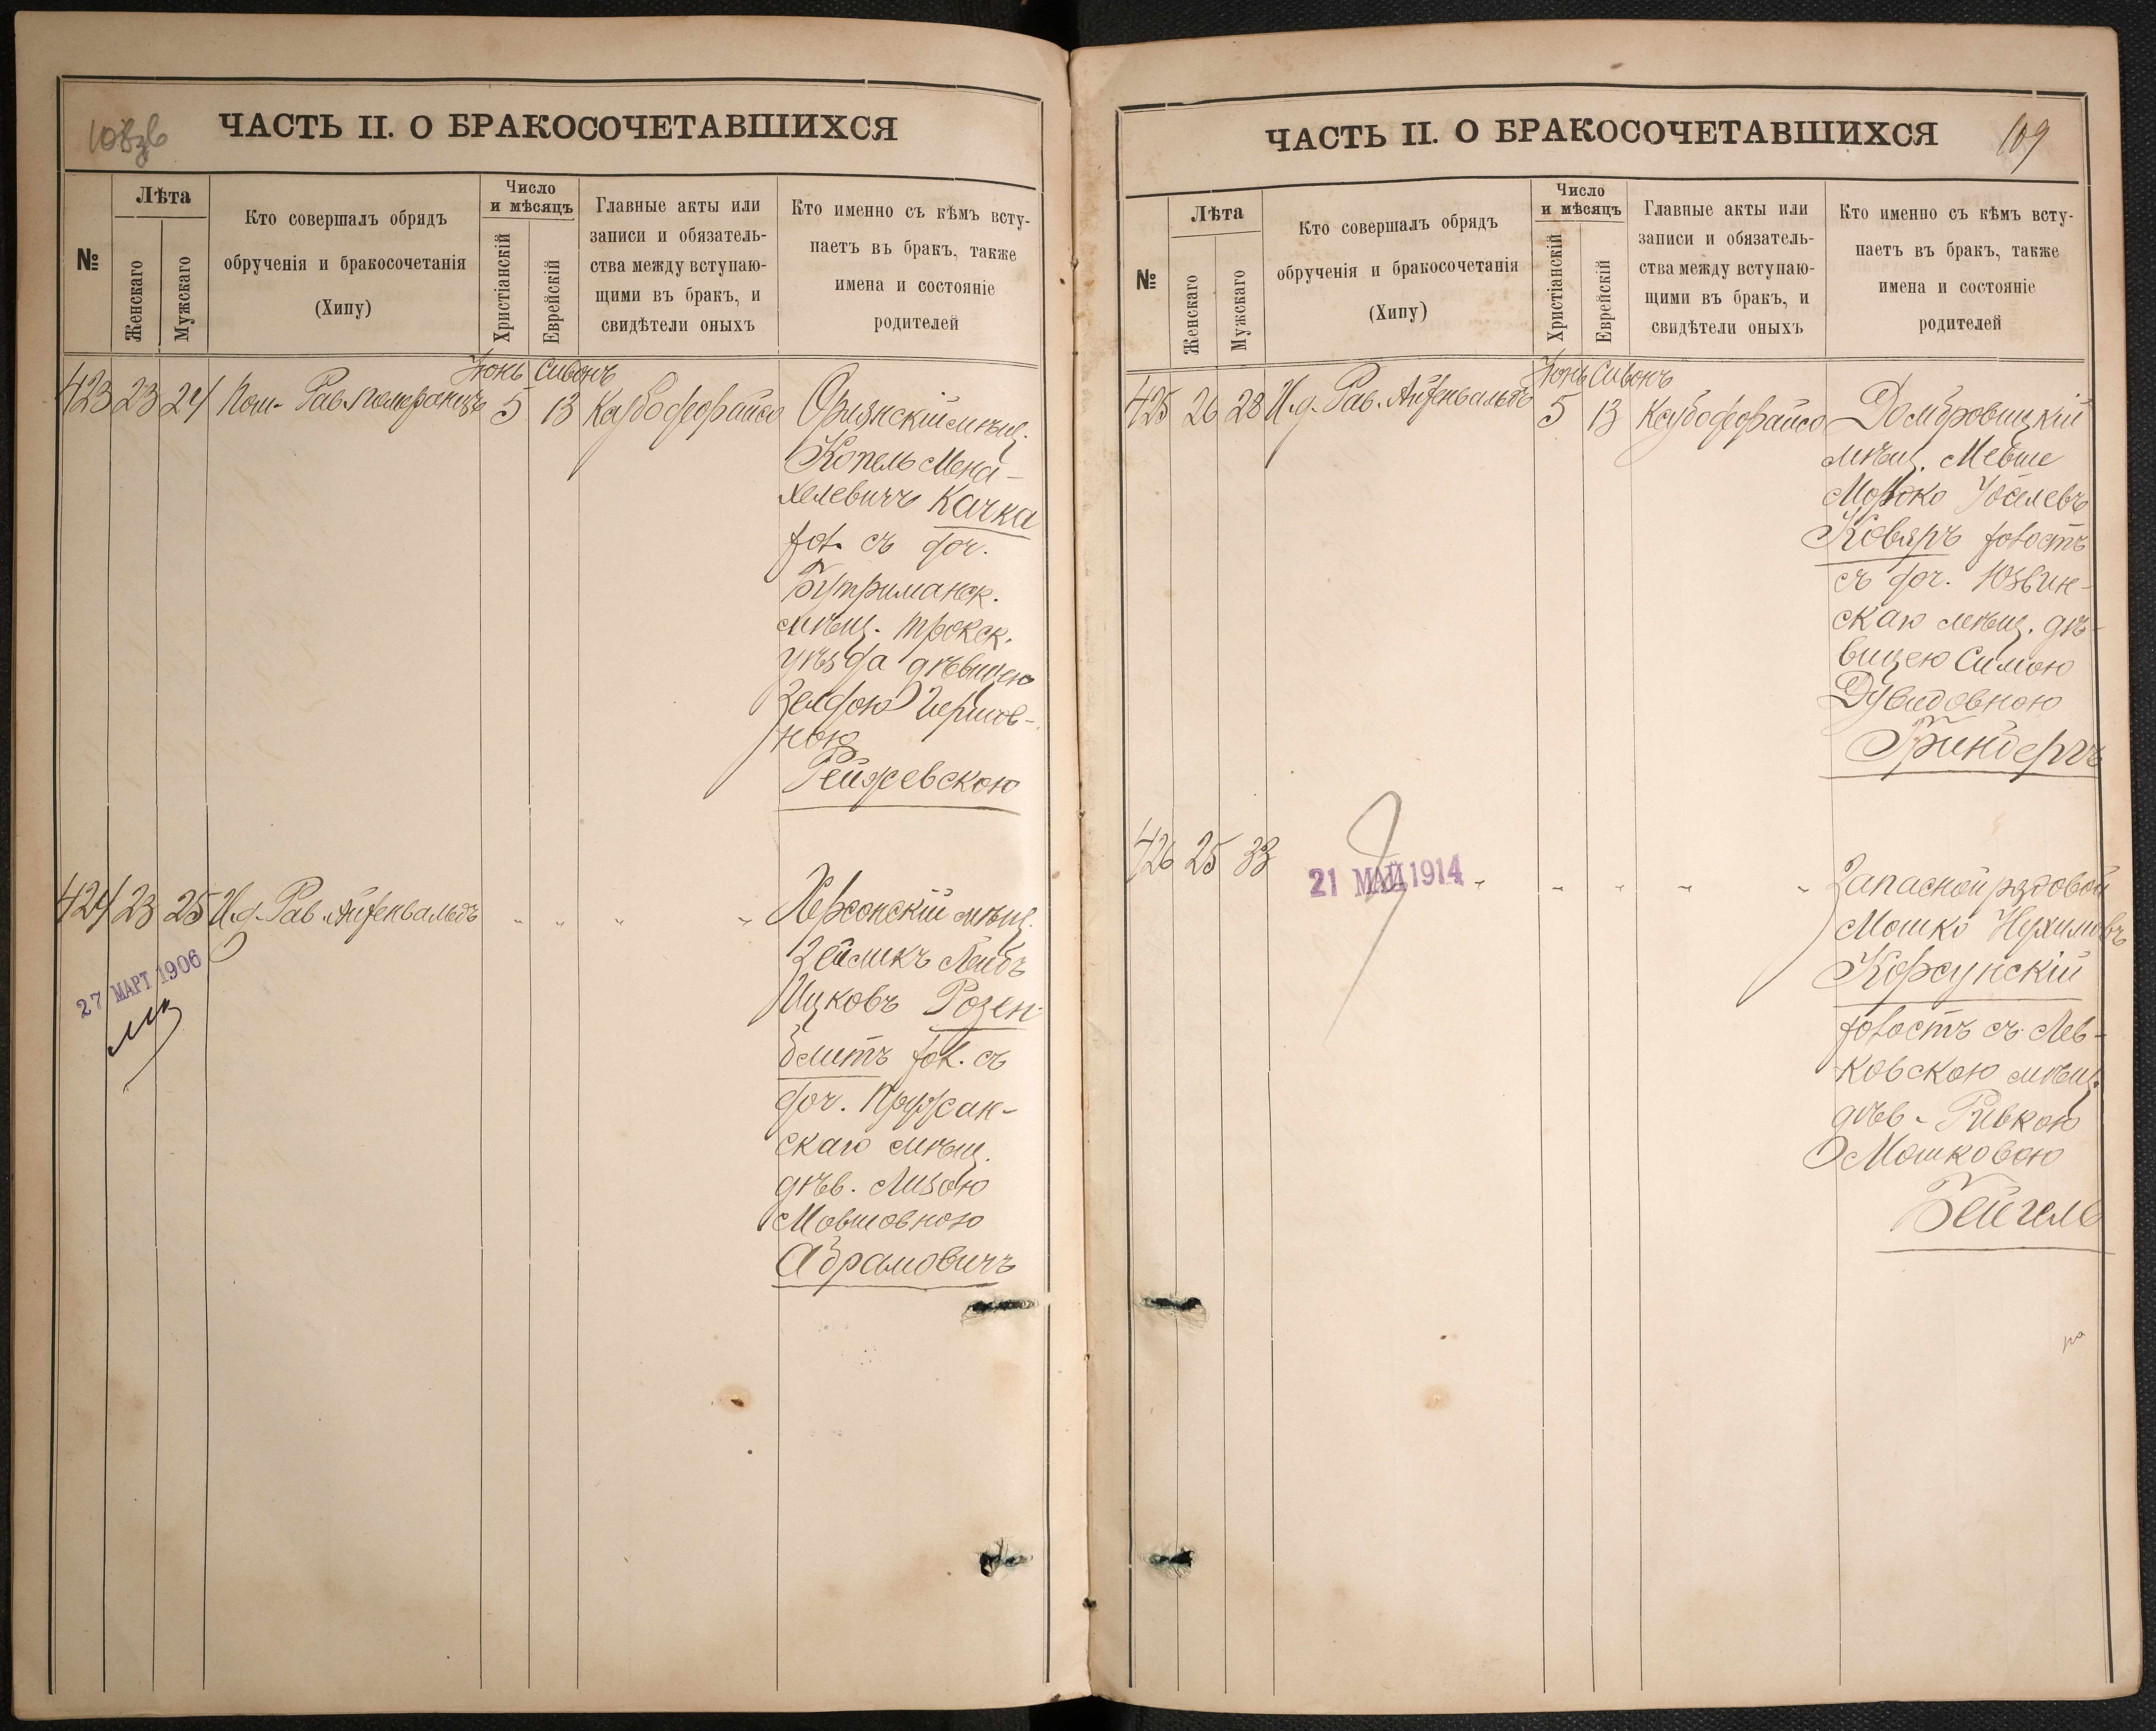 ЧАСТЬ II. О БРАКОСОЧЕТАВШИХСЯ
№
Лѣта
Женскаго
Мужскаго
Кто совершалъ обрядъ
обрученія и бракосочетанія
(Хипу)
Число
и мѣсяцъ
Христіанскій
Еврейскій
Главные акты или
записи и обязатель-
ства между вступаю-
щими въ бракъ, и
свидѣтели оныхъ
Кто именно съ кѣмъ всту-
паетъ въ бракъ, также
имена и состояніе
родителей
Іюнь Сивонъ
423 23 24 Пом. Рав. Померанцъ 5 13
мѣщ.
Копель Мена-
хелевичъ Качка
хол. съ доч.
Бутриманск.
мѣщ. Трокск.
уѣзда дѣвицею
Зелдою Гершов-
ною
424 23 25 И.д. Рав. Айзенвальдъ " " " "
Херсонскій мѣщ.
Зейликъ Лейбъ
Ицковъ Розен-
блитъ хол. съ
доч. Пружан-
скаго мѣщ.
дѣв. Лизою
Мовшовною
Абрамовичъ
27 МАРТ 1906
ЧАСТЬ II. О БРАКОСОЧЕТАВШИХСЯ
109
№
Лѣта
Женскаго
Мужскаго
Кто совершалъ обрядъ
обрученія и бракосочетанія
(Хипу)
Число
и мѣсяцъ
Христіанскій
Еврейскій
Главные акты или
записи и обязатель-
ства между вступаю-
щими въ бракъ, и
свидѣтели оныхъ
Кто именно съ кѣмъ всту-
паетъ въ бракъ, также
имена и состояніе
родителей
Іюнь Сивонъ
425 26 28 И.д. Рав. Айзенвальдъ 5 13
Домбровицкій
мѣщ. Мевше
Мошко Іоселевъ
Коваръ холостъ
съ доч. Юзвин-
скаго мѣщ. дѣ-
вицею Симою
Дувидовною
Гринбергъ
426 25 33 " " " " "
21 МАЙ 1914
Запасной рядовой
Мошко Нухимовъ
Корсунскій
холостъ съ Лев-
ковскою мѣщ.
дѣв. Ривкою
Мошковою
Бейгель